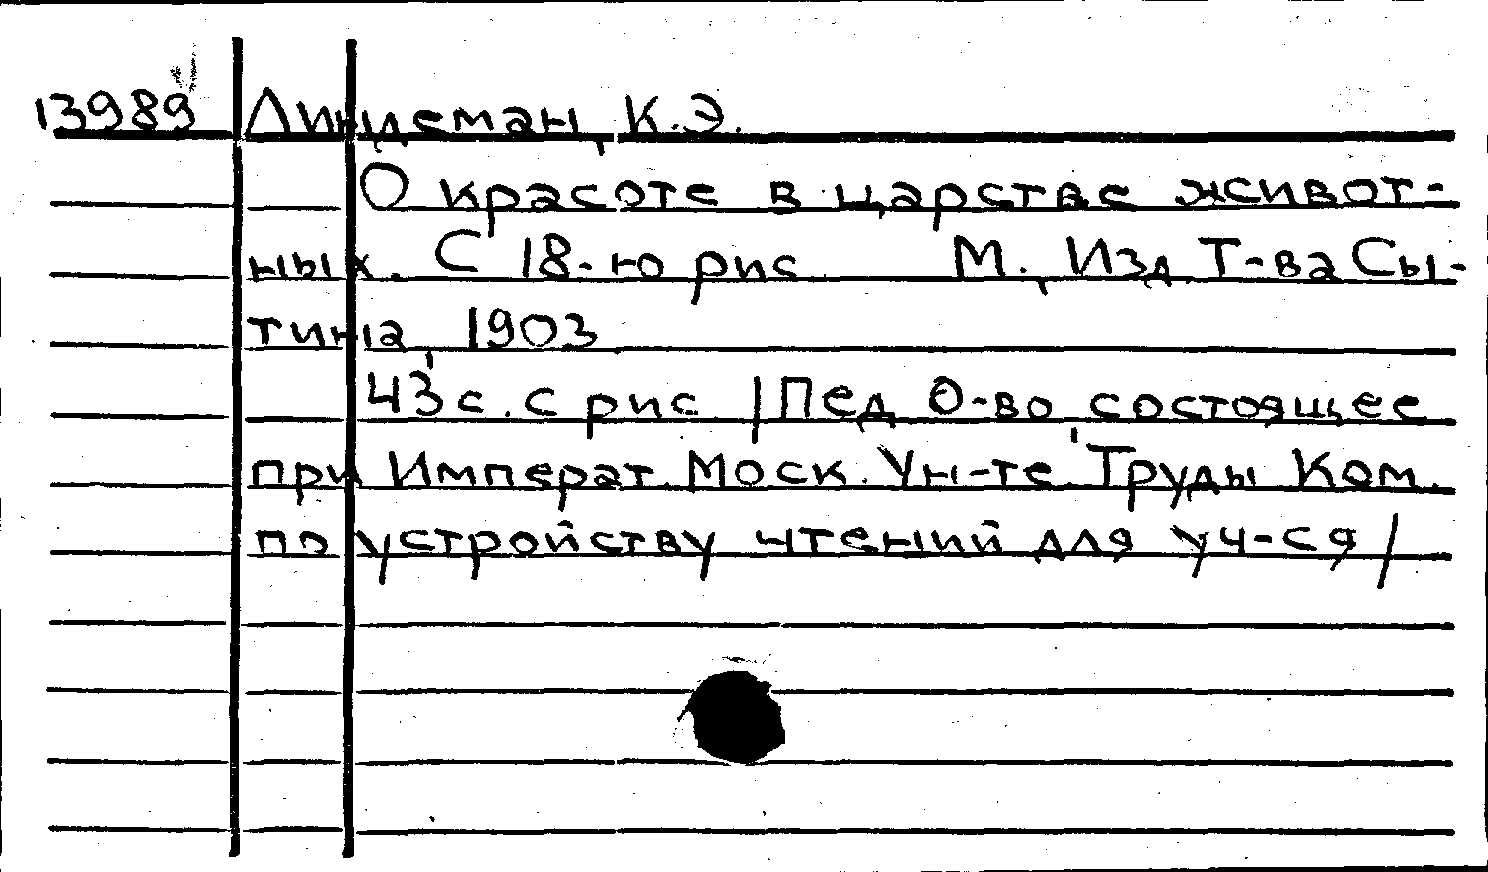 13989 Линдеман, К.Э.
О красоте в царстве живот-
ных. С 18-ю рис М., Изд Т-ва Сы-
тина, 1903
43 с. с рис /Пед О-во, состоящее
при Императ. Моск. Ун-те. Труды Ком.
по устройству чтений для уч-ся/